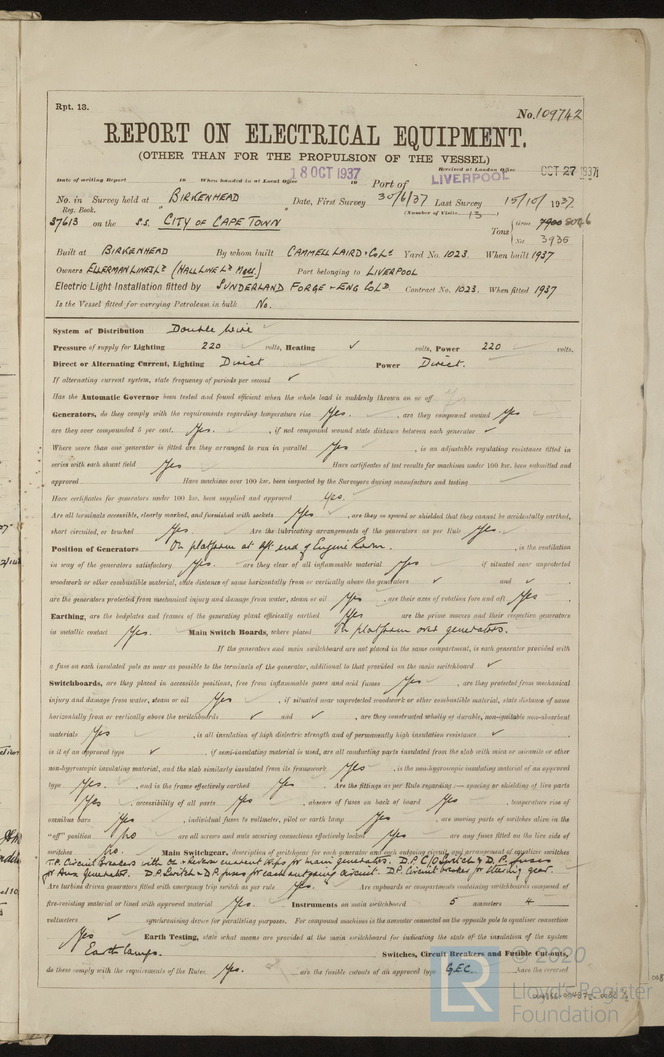 Rpt. 13.
No. 109742
REPORT ON ELECTRICAL EQUIPMENT.
(OTHER THAN FOR THE PROPULSION OF THE VESSEL)
Date of writing Report 19 When handed in at Local Office 19 Received at London Office
18 OCT 1937 Port of LIVERPOOL OCT 27 1937
No. in Survey held at BIRKENHEAD Date, First Survey 30/6/37 Last Survey 15/10/1937
Reg. Book. (Number of Visits 13)
37613 on the S.S. CITY OF CAPE TOWN Tons Gross 7900 8046
Net 3935
Built at BIRKENHEAD By whom built CAMMELL LAIRD & Co Ld Yard No. 1023. When built 1937
Owners ELLERMAN LINES Ld (HALL LINE Ld) Port belonging to LIVERPOOL
Electric Light Installation fitted by SUNDERLAND FORGE & ENG Co Ld. Contract No. 1023. When fitted 1937
Is the Vessel fitted for carrying Petroleum in bulk No.
System of Distribution Double wire ✓
Pressure of supply for Lighting 220 volts, Heating ✓ volts, Power 220 volts.
Direct or Alternating Current, Lighting Direct Power Direct.
If alternating current system, state frequency of periods per second ✓
Has the Automatic Governor been tested and found efficient when the whole load is suddenly thrown on or off Yes
Generators, do they comply with the requirements regarding temperature rise Yes. , are they compound wound Yes
are they over compounded 5 per cent. Yes. , if not compound wound state distance between each generator ✓
Where more than one generator is fitted are they arranged to run in parallel Yes , is an adjustable regulating resistance fitted in
series with each shunt field Yes Have certificates of test results for machines under 100 kw. been submitted and
approved Have machines over 100 kw. been inspected by the Surveyors during manufacture and testing
Have certificates for generators under 100 kw. been supplied and approved Yes.
Are all terminals accessible, clearly marked, and furnished with sockets Yes , are they so spaced or shielded that they cannot be accidentally earthed,
short circuited, or touched Yes. Are the lubricating arrangements of the generators as per Rule Yes.
Position of Generators On platform at Aft. end of Engine Room. , is the ventilation
in way of the generators satisfactory Yes. are they clear of all inflammable material Yes if situated near unprotected
woodwork or other combustible material, state distance of same horizontally from or vertically above the generators ✓ and ✓ .
are the generators protected from mechanical injury and damage from water, steam or oil Yes , are their axes of rotation fore and aft Yes.
Earthing, are the bedplates and frames of the generating plant efficiently earthed Yes are the prime movers and their respective generators
in metallic contact Yes. Main Switch Boards, where placed On platform over generators.
If the generators and main switchboard are not placed in the same compartment, is each generator provided with
a fuse on each insulated pole as near as possible to the terminals of the generator, additional to that provided on the main switchboard ✓
Switchboards, are they placed in accessible positions, free from inflammable gases and acid fumes Yes , are they protected from mechanical
injury and damage from water, steam or oil Yes , if situated near unprotected woodwork or other combustible material, state distance of same
horizontally from or vertically above the switchboards ✓ and ✓ , are they constructed wholly of durable, non-ignitable non-absorbent
materials Yes , is all insulation of high dielectric strength and of permanently high insulation resistance ✓
is it of an approved type ✓ , if semi-insulating material is used, are all conducting parts insulated from the slab with mica or micanite or other
non-hygroscopic insulating material, and the slab similarly insulated from its framework Yes , is the non-hygroscopic insulating material of an approved
type Yes. , and is the frame effectively earthed Yes . Are the fittings as per Rule regarding:— spacing or shielding of live parts
Yes , accessibility of all parts Yes , absence of fuses on back of board Yes , temperature rise of
omnibus bars Yes , individual fuses to voltmeter, pilot or earth lamp Yes , are moving parts of switches alive in the
"off" position No are all screws and nuts securing connections effectively locked Yes are any fuses fitted on the live side of
switches No. Main Switchgear, description of switchgear for each generator and each outgoing circuit, and arrangement of equaliser switches
T.P. Circuit Breakers with OL & Reverse current trips for main generators. D.P. C/O Switch & D.P. fuses
for Aux Generator. D.P. Switch & D.P. fuses for each outgoing circuit. D.P. Circuit breaker for steering gear.
Are turbine driven generators fitted with emergency trip switch as per rule Yes. Are cupboards or compartments containing switchboards composed of
fire-resisting material or lined with approved material Yes. Instruments on main switchboard 5 ammeters 4
voltmeters ✓ synchronising device for paralleling purposes. For compound machines is the ammeter connected on the opposite pole to equaliser connection
Yes Earth Testing, state what means are provided at the main switchboard for indicating the state of the insulation of the system
Earth lamps. Switches, Circuit Breakers and Fusible Cutouts,
do these comply with the requirements of the Rules Yes. are the fusible cutouts of an approved type G.E.C. have the reversed
© 2020
Lloyd's Register
Foundation